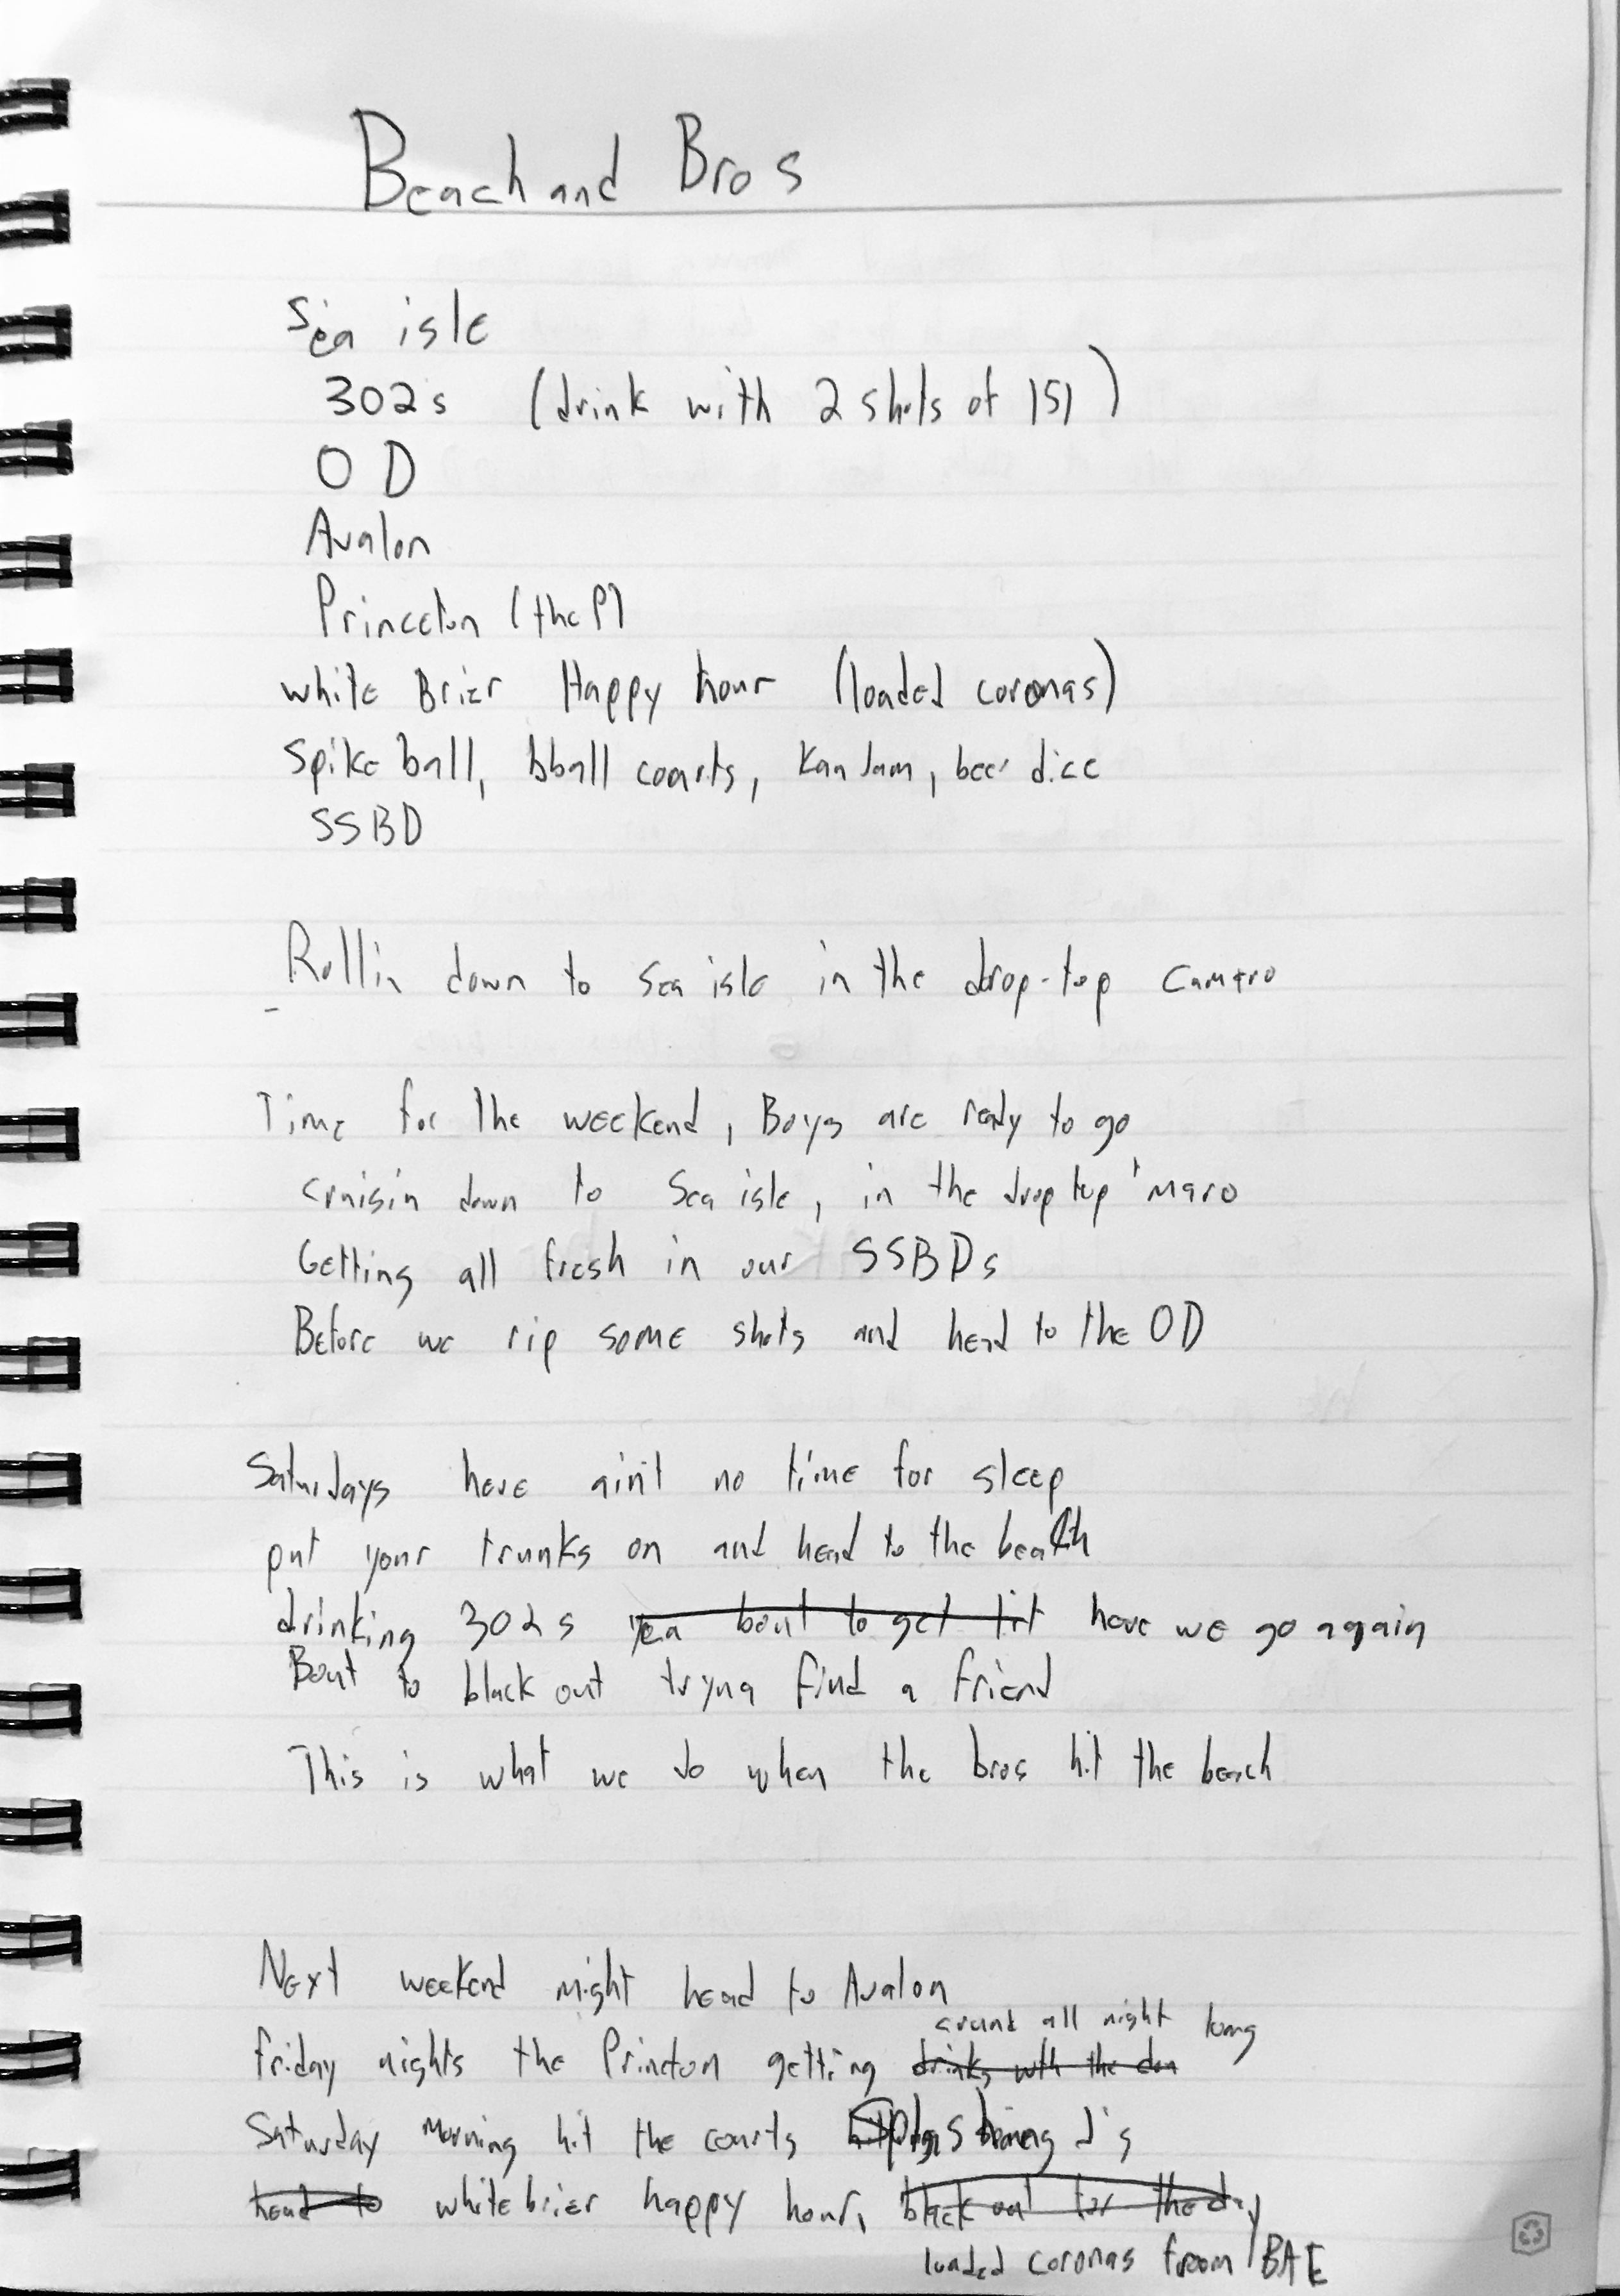 Beach and Bros
Sea isle
302s (drink with 2 shots of 151)
OD
Avalon
Princeton (the P)
white Brier Happy hour (loaded coronas)
Spike ball, bball courts, Kan Jam, beer dice
SSBD
Rollin down to Sea isle in the drop-top camaro
Time for the weekend, Boys are ready to go
cruisin down to Sea isle, in the drop top 'maro
Getting all fresh in our SSBDs
Before we rip some shots and head to the OD
Saturdays here ain't no time for sleep
put your trunks on and head to the beach
drinking 302s yea bout to get lit here we go again
Bout to black out tryna find a friend
This is what we do when the bros hit the beach
Next weekend might head to Avalon
crunk all night long
friday nights the Princton getting drinks wth the don
Saturday morning hit the courts Splashing 3's
head to whitebrier happy hour, black out for the day
loaded coronas froom BAE